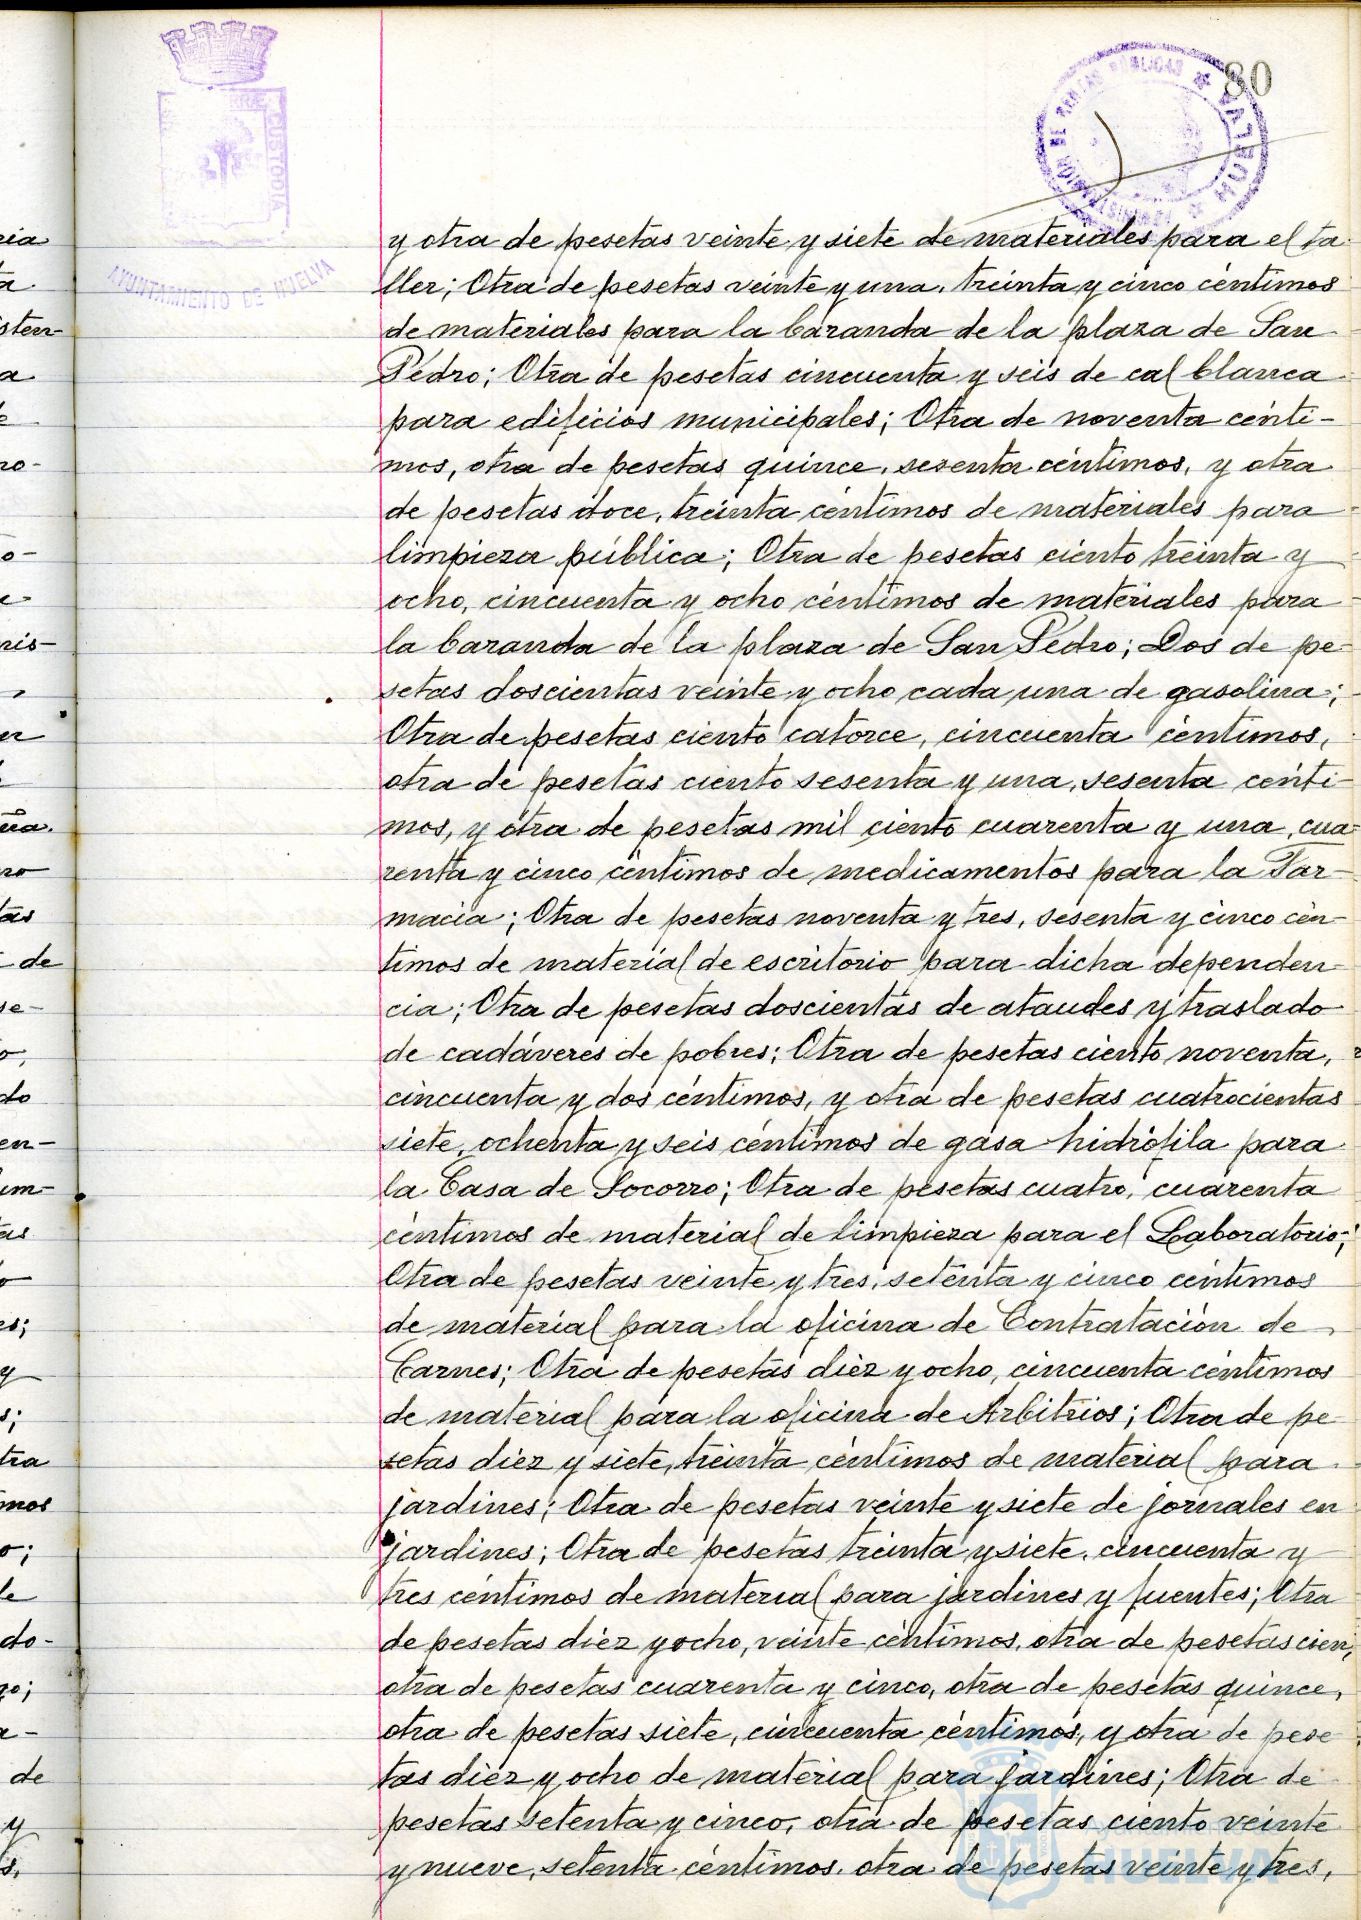 80
ADMINISTRACIÓN DE RENTAS PUBLICAS HUELVA
CUSTODIA
AYUNTAMIENTO DE HUELVA
y otra de pesetas veinte y siete de materiales para el ta-
ller; Otra de pesetas veinte y una, treinta y cinco céntimos
de materiales para la baranda de la plaza de San
Pedro; Otra de pesetas cincuenta y seis de cal blanca
para edificios municipales; Otra de noventa cénti-
mos, otra de pesetas quince, sesenta céntimos, y otra
de pesetas doce, treinta céntimos de materiales para
limpieza pública; Otra de pesetas ciento treinta y
ocho, cincuenta y ocho céntimos de materiales para
la baranda de la plaza de San Pedro; Dos de pe-
setas doscientas veinte y ocho cada una de gasolina;
Otra de pesetas ciento catorce, cincuenta céntimos,
otra de pesetas ciento sesenta y una, sesenta cénti-
mos, y otra de pesetas mil ciento cuarenta y una, cua-
renta y cinco céntimos de medicamentos para la Far-
macia; Otra de pesetas noventa y tres, sesenta y cinco cén-
timos de material de escritorio para dicha dependen-
cia; Otra de pesetas doscientas de ataudes y traslado
de cadáveres de pobres; Otra de pesetas ciento noventa,
cincuenta y dos céntimos, y otra de pesetas cuatrocientas
siete, ochenta y seis céntimos de gasa hidrófila para
la Casa de Socorro; Otra de pesetas cuatro, cuarenta
céntimos de material de limpieza para el Laboratorio;
Otra de pesetas veinte y tres, setenta y cinco céntimos
de material para la oficina de Contratación de
Carnes; Otra de pesetas diez y ocho, cincuenta céntimos
de material para la oficina de Arbitrios; Otra de pe-
setas diez y siete, treinta céntimos de material para
jardines; Otra de pesetas veinte y siete de jornales en
jardines; Otra de pesetas treinta y siete, cincuenta y
tres céntimos de material para jardines y fuentes; Otra
de pesetas diez y ocho, veinte céntimos, otra de pesetas cien,
otra de pesetas cuarenta y cinco, otra de pesetas quince,
otra de pesetas siete, cincuenta céntimos, y otra de pese-
tas diez y ocho de material para jardines; Otra de
pesetas setenta y cinco, otra de pesetas ciento veinte
y nueve, setenta céntimos, otra de pesetas veinte y tres,
Ayuntamiento
HUELVA